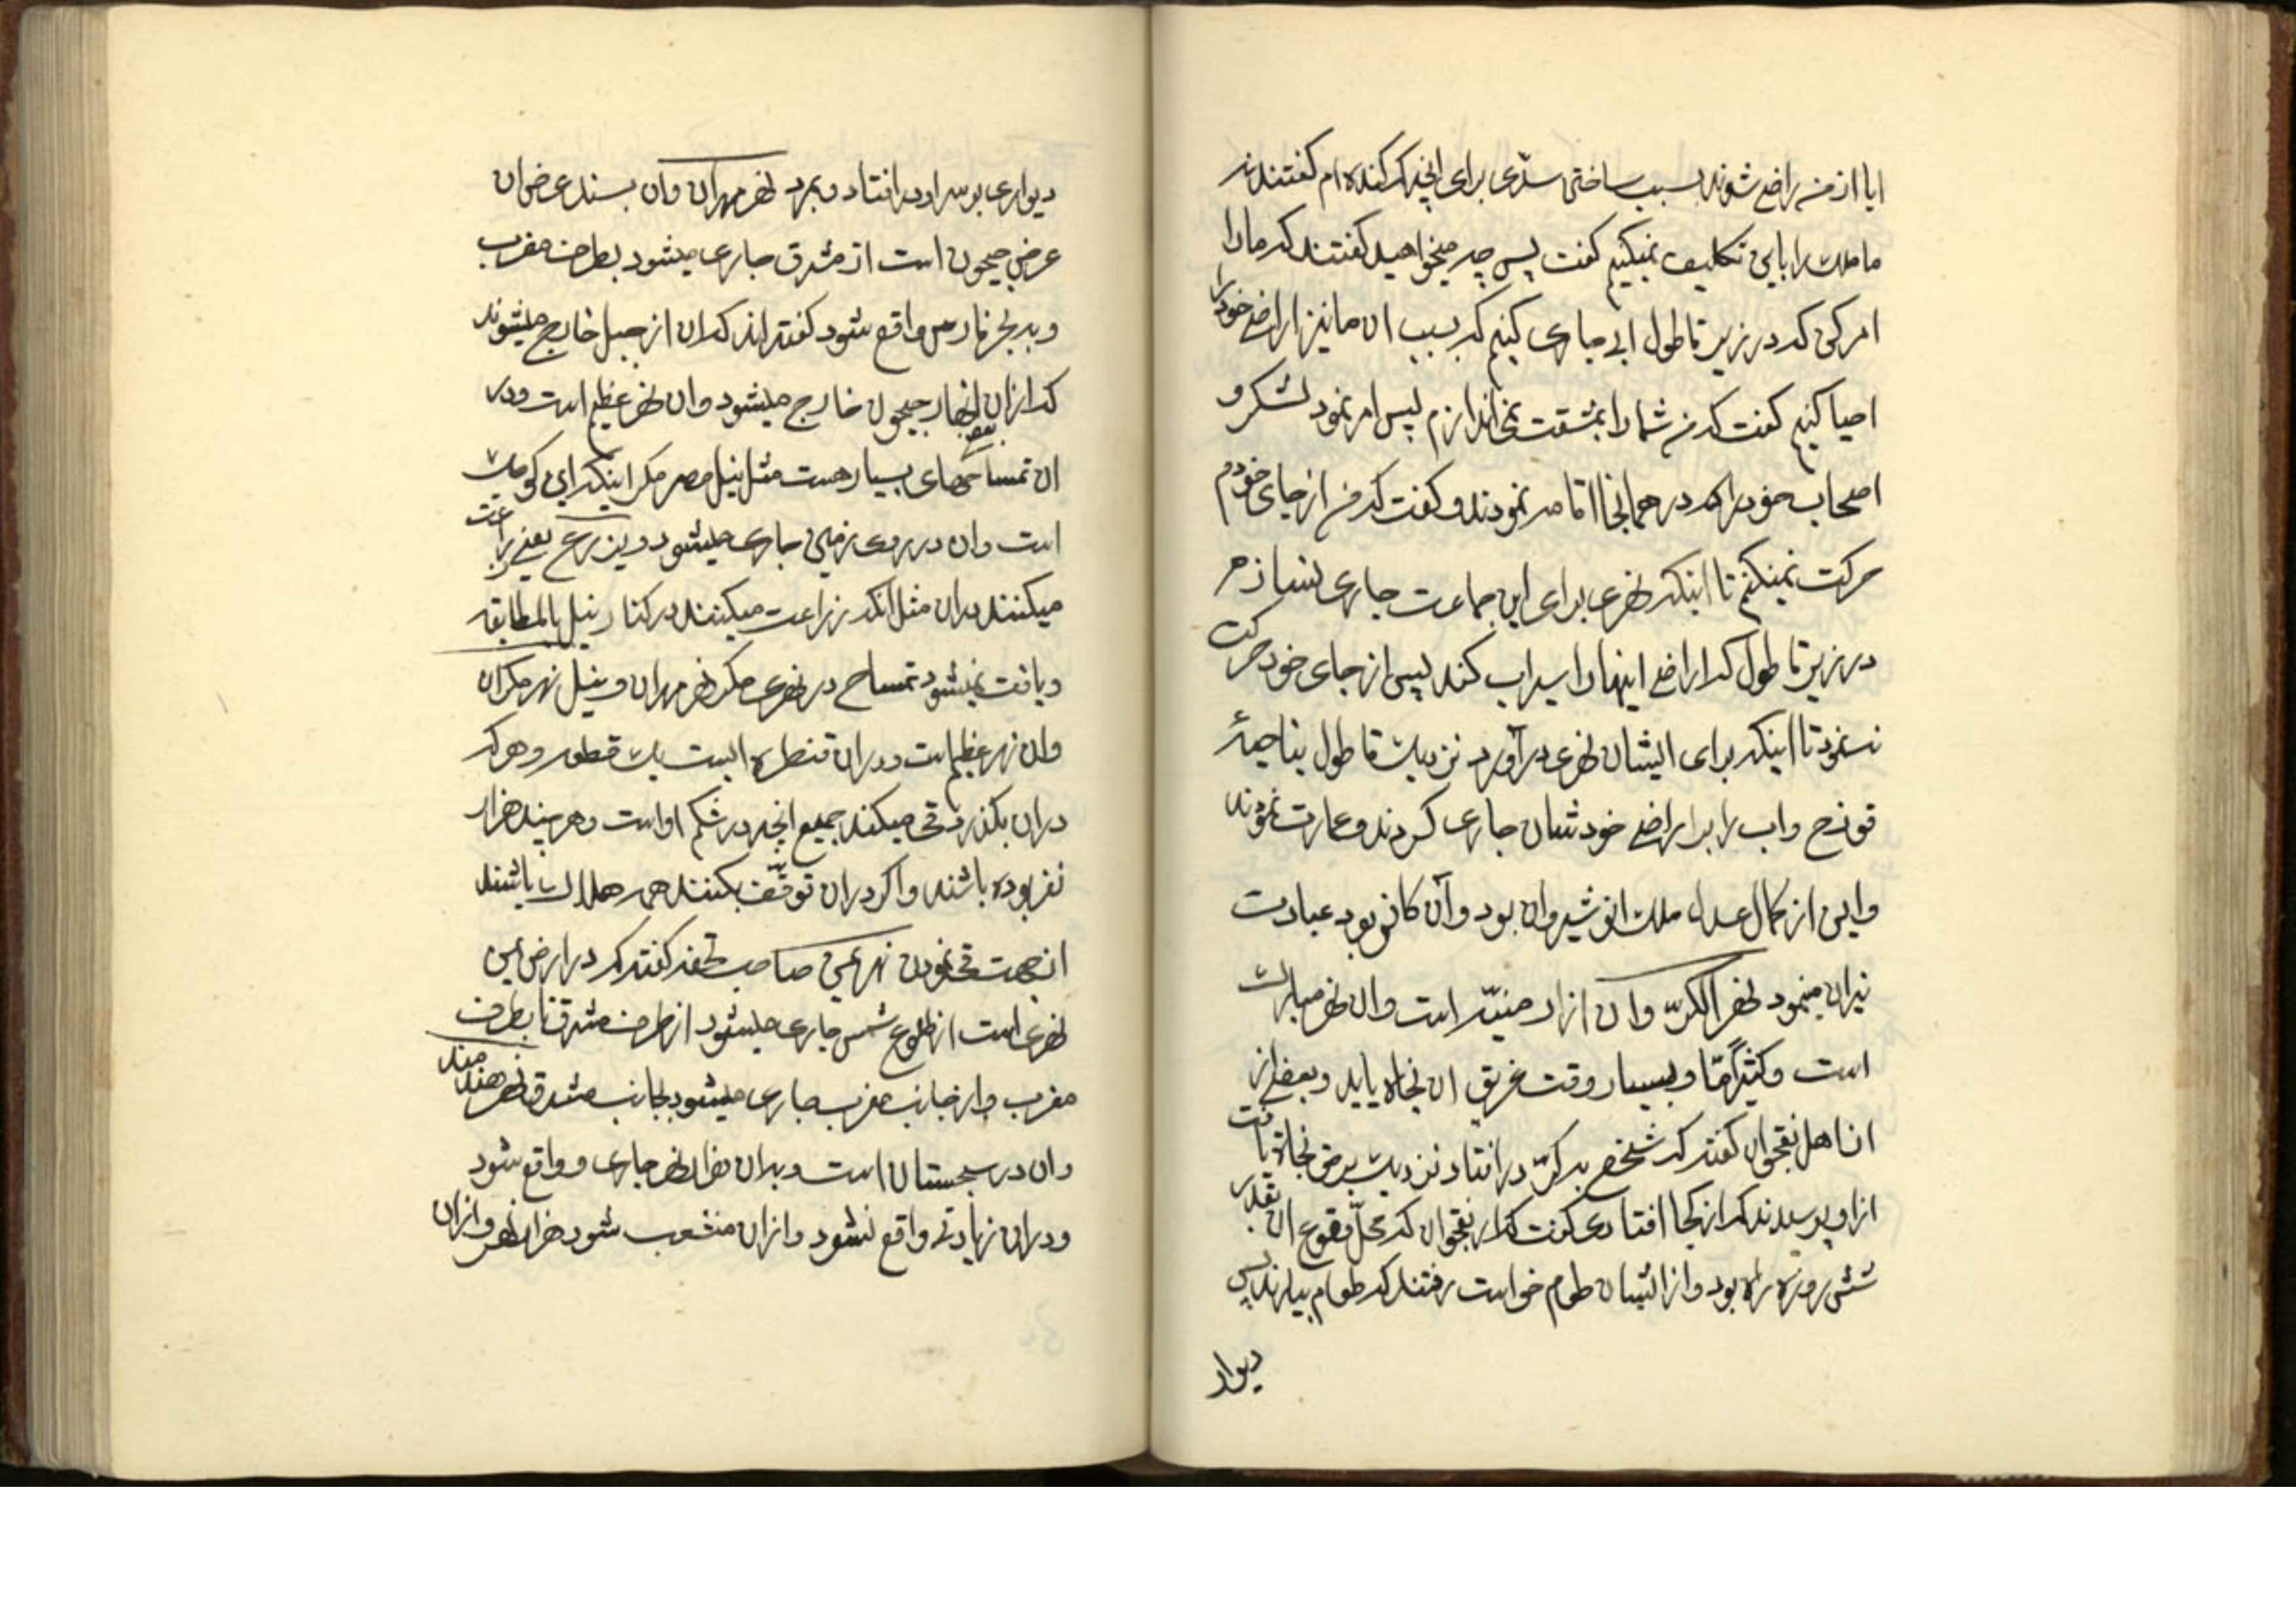 ایا از من راضی شوند بسبب ساختن سدّی برای انچه که کنده ام گفتند نه
ما ملک را باین تکلیف نمیکنیم گفت پس چه میخواهید گفتند که ما را
امر کن که در زیر قاطول ابی جاری کنیم که بسبب ان ما نیز اراضی خود را
احیا کنیم گفت که من شما را بمشقت نمی اندازم پس امر نمود لشکر و
اصحاب خود را که در همانجا اقامه نمودند و گفت که من از جای خودم
حرکت نمیکنم تا اینکه نهری برای این جماعت جاری نسازم
در زیر قاطول که اراضی اینها را سیراب کند پس از جای خود حرکت
ننمود تا اینکه برای ایشان نهری در آورد نزدیک قاطول بناحیهٔ
قورح واب را برا اراضی خودشان جاری کردند و عمارت نمودند
واین از کمال عدل ملک انوشیروان بود و آن کافر بود عبادت
نیران مینمود نهر الکرّ وان از ارمنیّه است وان نهر مبارک
است وکثیراً مّا و بسیار وقت غریق ان نجاة یابد و بعضی از
ان اهل نقجوان گفته که شخصی به کرّ در افتاد نزدیک بمرض نجاة یافت
از او پرسیدند که از کجا افتادی گفت که از نقجوان که محلّ وقوع ان بقدر
شش روزه راه بود واز ایشان طعام خواست رفتند که طعام بیارند پس
دیوار
دیواری بر سر او در افتاد و بمرد نهر مهران وان بسند عرض ان
عرض جیحون است از مشرق جاری میشود بطرف مغرب
و به بحر فارس واقع شود گفته اند که ان از جبل خارج میشوند
که از ان بعض انهار جیحون خارج میشود وان نهر عظیم است ودر
ان تمساحهای بسیار هست مثل نیل مصر مگر اینکه این کوچک
است وان در روی زمین جاری میشود ویزرع یعنی زراعت
میکنند بران مثل انکه زراعت میکنند در کنار نیل بالمطابقه
ویافت نمیشود تمساح در نهری مگر نهر مهران و نیل نهر مکران
وان نهر عظیم است ودران قنطره ایست یک قطعه وهر که
دران بگذرد قی میکند جمیع انچه در شکم او است وهر چند هزار
نفر بوده باشند واکر دران توقّف بکنند همه هلاک باشند
از جهت قی نمودن نهر یمن صاحب تحفه گفته که در ارض یمن
نهری است از طلوع شمس جاری میشود از طرف مشرق تا بطرف
مغرب واز جانب مغرب جاری میشود بجانب مشرق نهر هند مند
وان در سجستان است وبدان هزار نهر جاری و واقع شود
ودران زیادتی واقع نشود وازان منشعب شود هزار نهر وازان